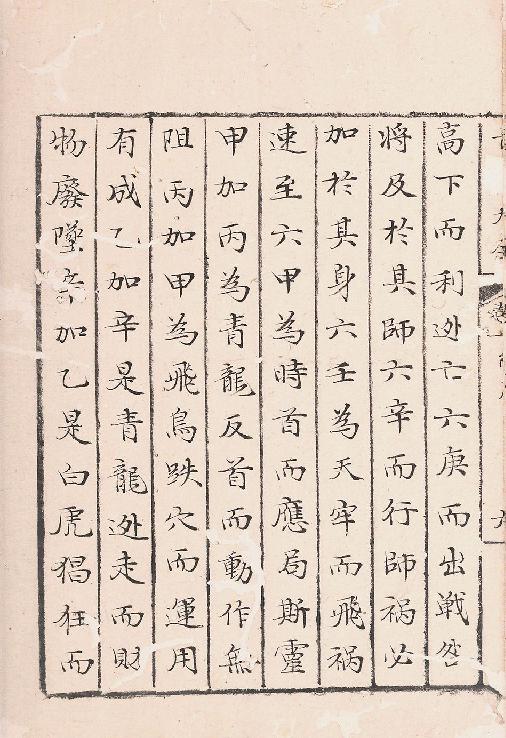 高下而利逃亡六庚而出戦咎
将及於其師六辛而行師禍必
加於其身六壬為天牢而飛禍
速至六甲為時首而應局斯靈
甲加丙為青龍反首而動作無
阻丙加甲為飛鳥跌穴而運用
有成乙加辛是青龍逃走而財
物廢墜辛加乙是白虎猖狂而